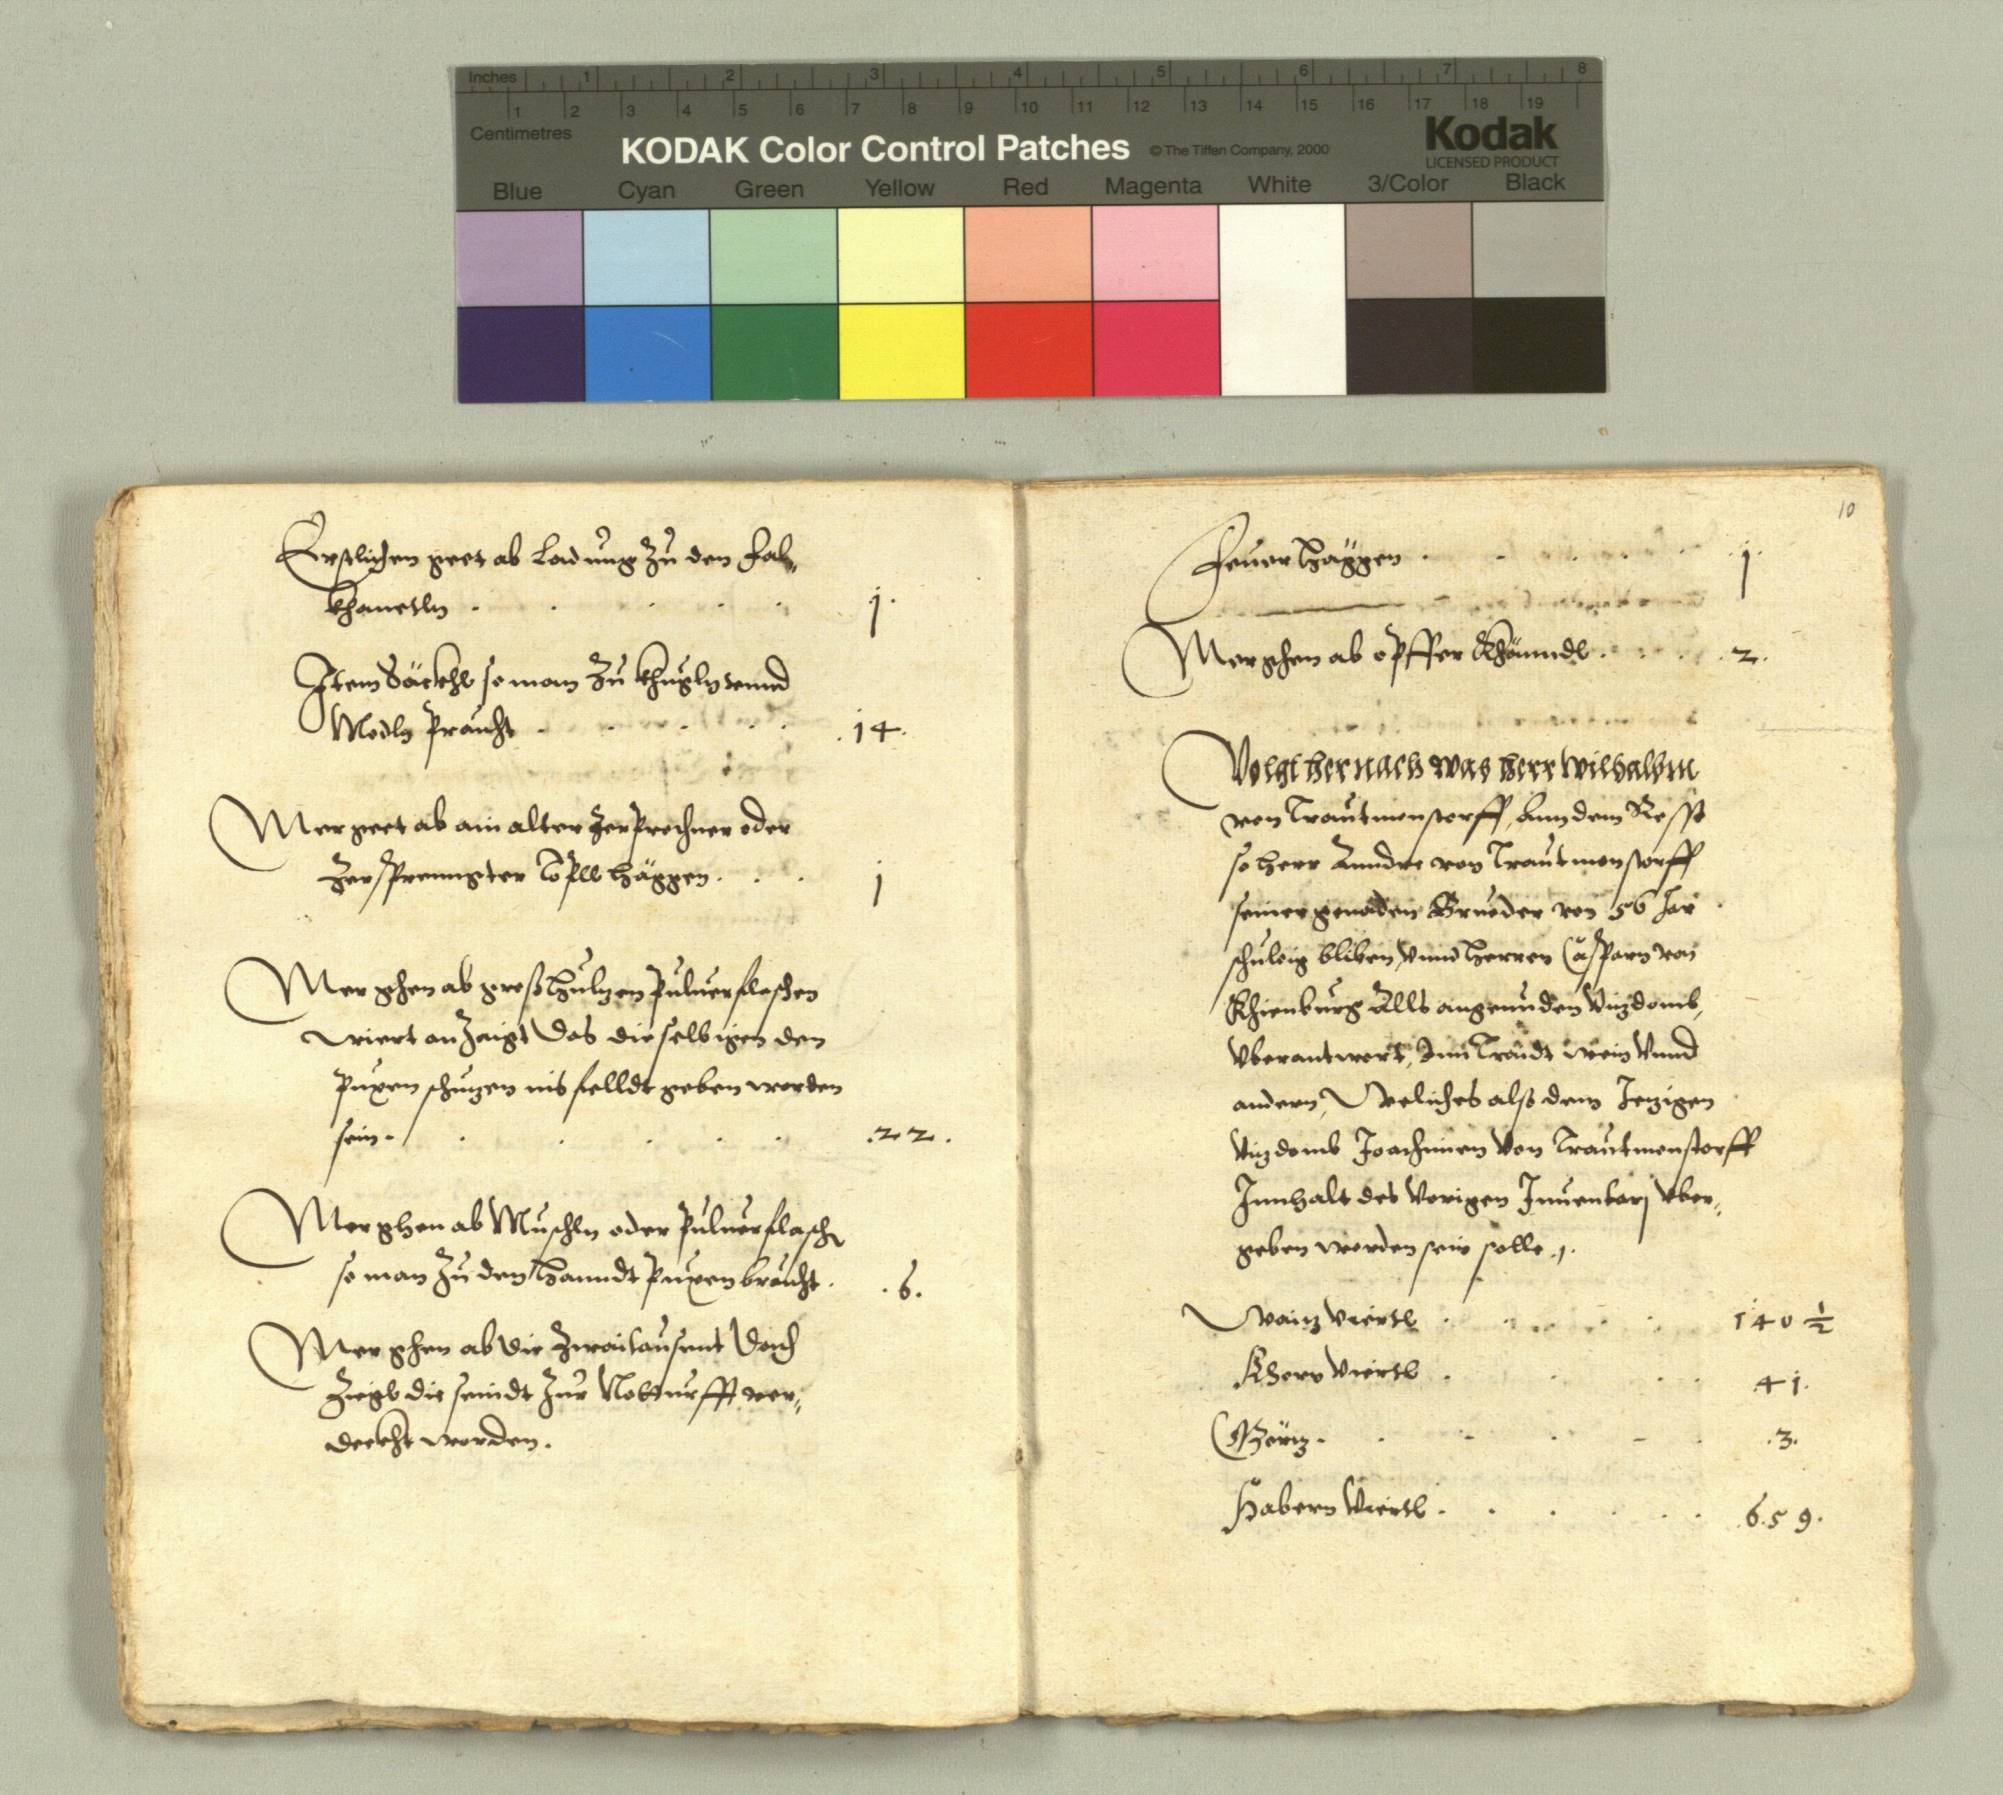 Inches 1 2 3 4 5 6 7 8
1 2 3 4 5 6 7 8 9 10 11 12 13 14 15 16 17 18 19
Centimetres
KODAK Color Control Patches © The Tiffen Company, 2000
Kodak
LICENSED PRODUCT
Blue Cyan Green Yellow Red Magenta White 3/Color Black
Erstlichen geet ab Ladung zu den Fal„
khanetln . . . . . 1.
Item Säckhl so man zu khugln vnnd
Modln praucht . . . . . 14.
Mer geet ab ain alter zerprochner oder
zersprengter Topll häggen . . . 1
Mer ghen ab gross hulzen puluerflaschen
wiert anzaigt das dieselbigen den
puxenschuzen ins felldt geben worden
sein . . . . . . 22.
Mer ghen ab Muschln oder puluerflasch
so man zu den hanndt puxen braucht . 6.
Mer ghen ab die zwaitausent Dach
ziegl die seindt zur Notturfft ver„
deckht worden.
10
Feuer häggen . . . . . 1.
Mer ghen ab opffer khänndl . . . . 2.
Volgt hernach was herr wilhalbm
von Trautmenstorff, Aun dem Resst
so herr Anndre von Trautmenstorff
seiner genaden Brueder von 56 Jar
schuldig bliben, vnnd herren Casparn von
Khienburg Alls angeunden Vizdomb,
vberantwort, Inn Traidt wein Vnnd
andern, Weliches also dem Jezigen
Vizdomb Joachimen Von Trautmenstorff
Innhalt des Vorigen Inuentarj vber„
geben worden sein solle .1.
Waiz Viertl . . . . . 140 1/2
Khorn Viertl . . . . 41.
Gersz . . . . . . 3.
Habern Viertl . . . . . 659.